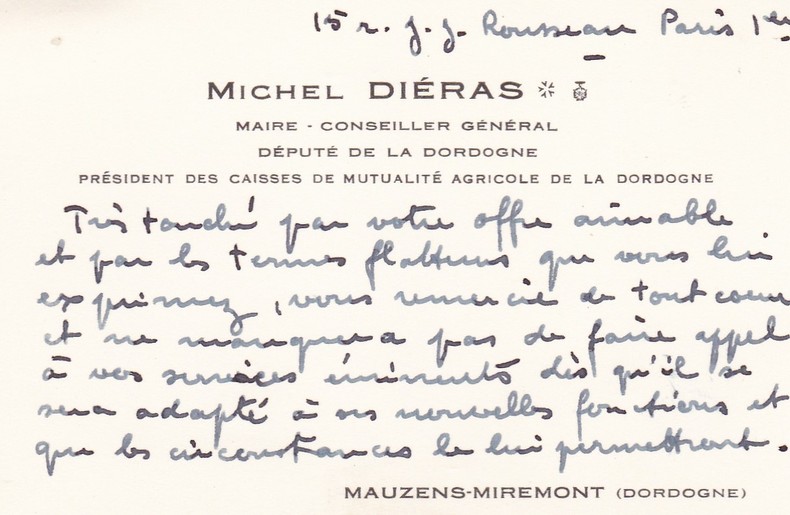 15 r. J. J. Rousseau Paris 1er
MICHEL DIÉRAS
MAIRE - CONSEILLER GÉNÉRAL
DÉPUTÉ DE LA DORDOGNE
PRÉSIDENT DES CAISSES DE MUTUALITÉ AGRICOLE DE LA DORDOGNE
Très touché par votre offre aimable
et par les termes flatteurs que vous lui
exprimez, vous remercie de tout coeur
et ne manquera pas de faire appel
à vos services éminents dès qu'il se
sera adapté à ses nouvelles fonctions et
que les circonstances le lui permettront.
MAUZENS-MIREMONT (DORDOGNE)